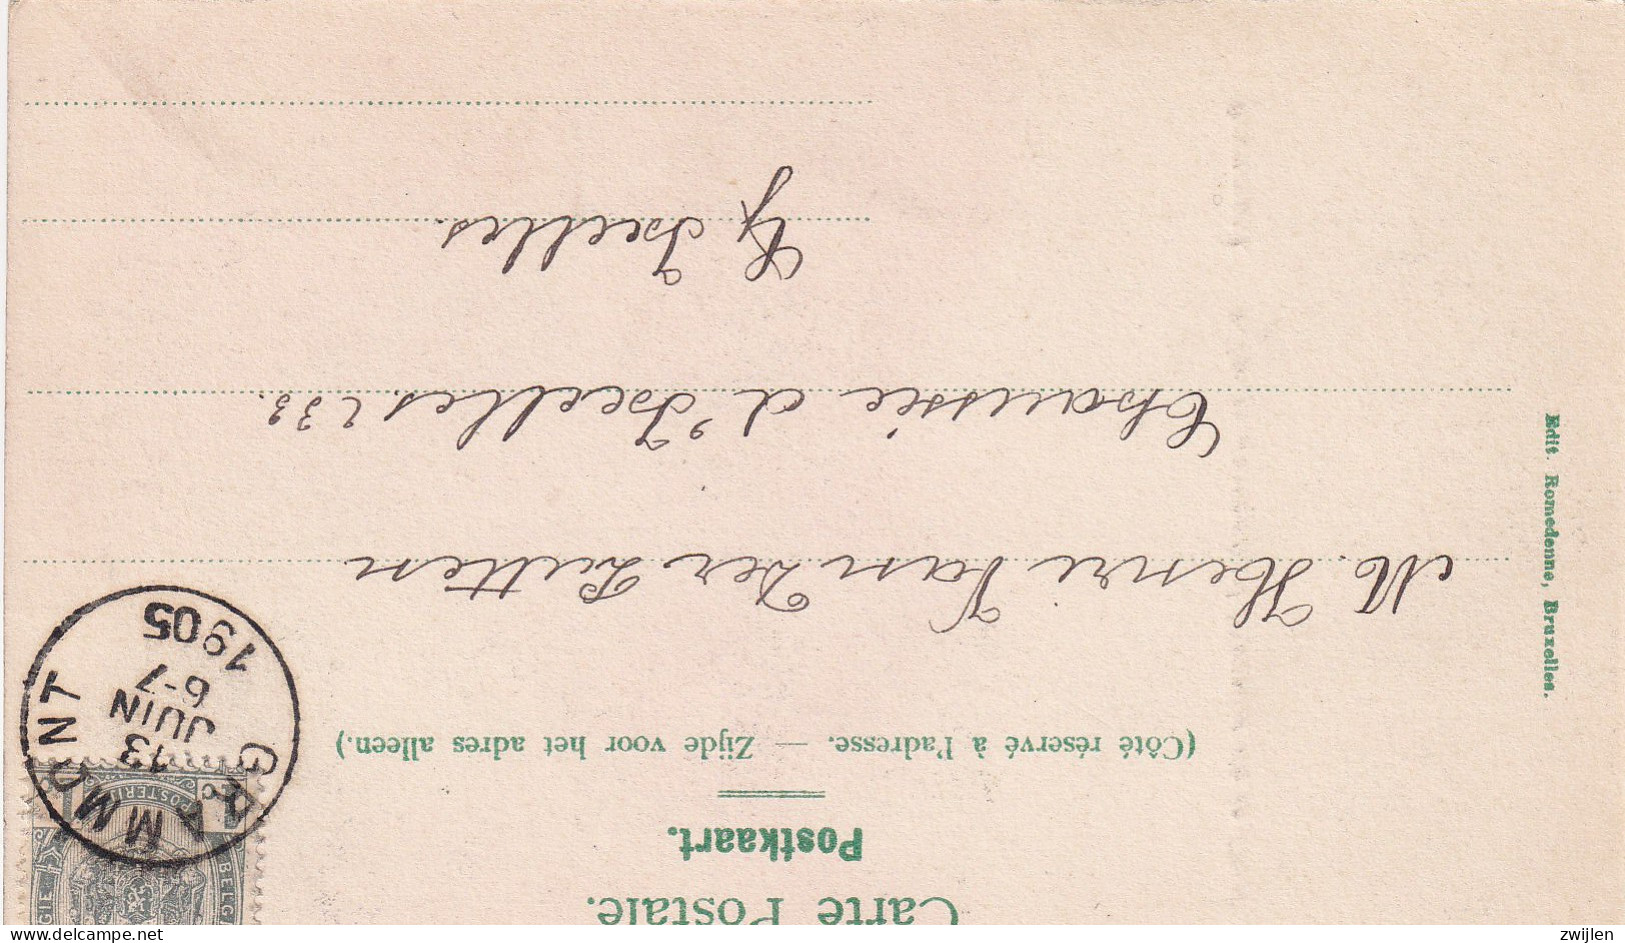 Carte Postale.
Postkaart.
(Côté réservé à l'adresse. — Zijde voor het adres alleen.)
GRAMMONT
13
JUIN
6-7
1905
POSTERIJ
BELG
GIE
M. Henri Van Der Zutten
Chaussée d'Ixelles 233.
Ixelles.
Edit. Romedenne, Bruxelles.
www.delcampe.net
zwijlen